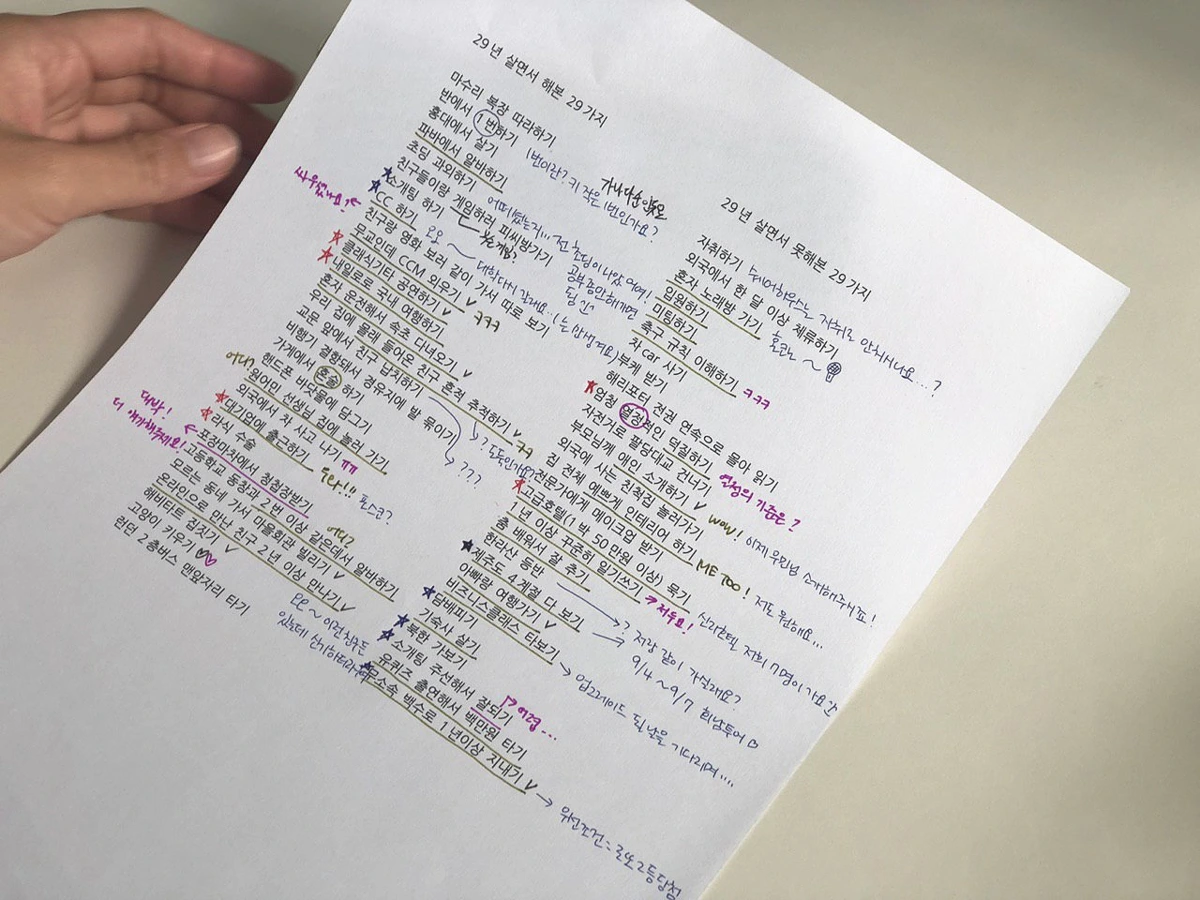 29년 살면서 해본 29가지
마수리 복장 따라하기
반에서 1번하기 1번이란? 키 작은 1번인가요? 가나다순이었음
홍대에서 살기
파바에서 알바하기
초딩 과외하기
친구들이랑 게임하러 피씨방가기
★소개팅 하기
★CC 하기 싸우셨나요?
친구랑 영화 보러 같이 가서 따로 보기
★무교인데 CCM 외우기 ✓ ㅋㅋㅋ
★클래식기타 공연하기 ✓
내일로 국내 여행하기
혼자 운전해서 속초 다녀오기 ✓
우리 집에 몰래 들어온 친구 흔적 추적하기 ✓ ㅋㅋ
교문 앞에서 친구 납치하기 ? 도둑인가요?
비행기 결항돼서 경유지에 발 묶이기 ???
가게에서 혼술 하기
핸드폰 바닷물에 담그기 어디?
원어민 선생님 집에 놀러 가기
외국에서 차 사고 나기 ㅠㅠ
★대기업에 출근하기 포스코?
★라식 수술
포장마차에서 청첩장받기 대박! 더 얘기해주세요!
고등학교 동창과 2번 이상 같은데서 알바하기
모르는 동네 가서 마을회관 빌리기 ✓ 어디?
온라인으로 만난 친구 2년 이상 만나기 ✓
해비타트 집짓기 ✓
고양이 키우기 ♥♥
런던 2층버스 맨앞자리 타기
29년 살면서 못해본 29가지
자취하기 쉐어하우스는 자취로 안치시나요...?
외국에서 한 달 이상 체류하기
혼자 노래방 가기 혼코노~
입원하기
미팅하기
축구 규칙 이해하기 ㅋㅋㅋ
차 car 사기
부케 받기
해리포터 전권 연속으로 몰아 읽기
★엄청 열정적인 덕질하기 열정의 기준은?
자전거로 팔당대교 건너기
부모님께 애인 소개하기 ✓ wow! 이제 우리님 소개해주시죠!
외국에 사는 친척집 놀러가기
집 전체 예쁘게 인테리어 하기 ME TOO! 저도 원해요...
전문가에게 메이크업 받기
★고급호텔(1박 50만원 이상) 묵기
1년 이상 꾸준히 일기쓰기 → 저두요!
춤 배워서 잘 추기
한라산 등반 → ? 저랑 같이 가실래요?
★제주도 4계절 다 보기
아빠랑 여행가기 ✓ → 9/4~9/7
비즈니스클래스 타보기 → 업그레이드 될 날을 기다리며....
★담배피기
기숙사 살기
★북한 가보기
★소개팅 주선해서 잘되기 어렵...
유퀴즈 출연해서 백만원 타기
★무소속 백수로 1년이상 지내기 ✓ → 우선조건 = 로또2등당첨